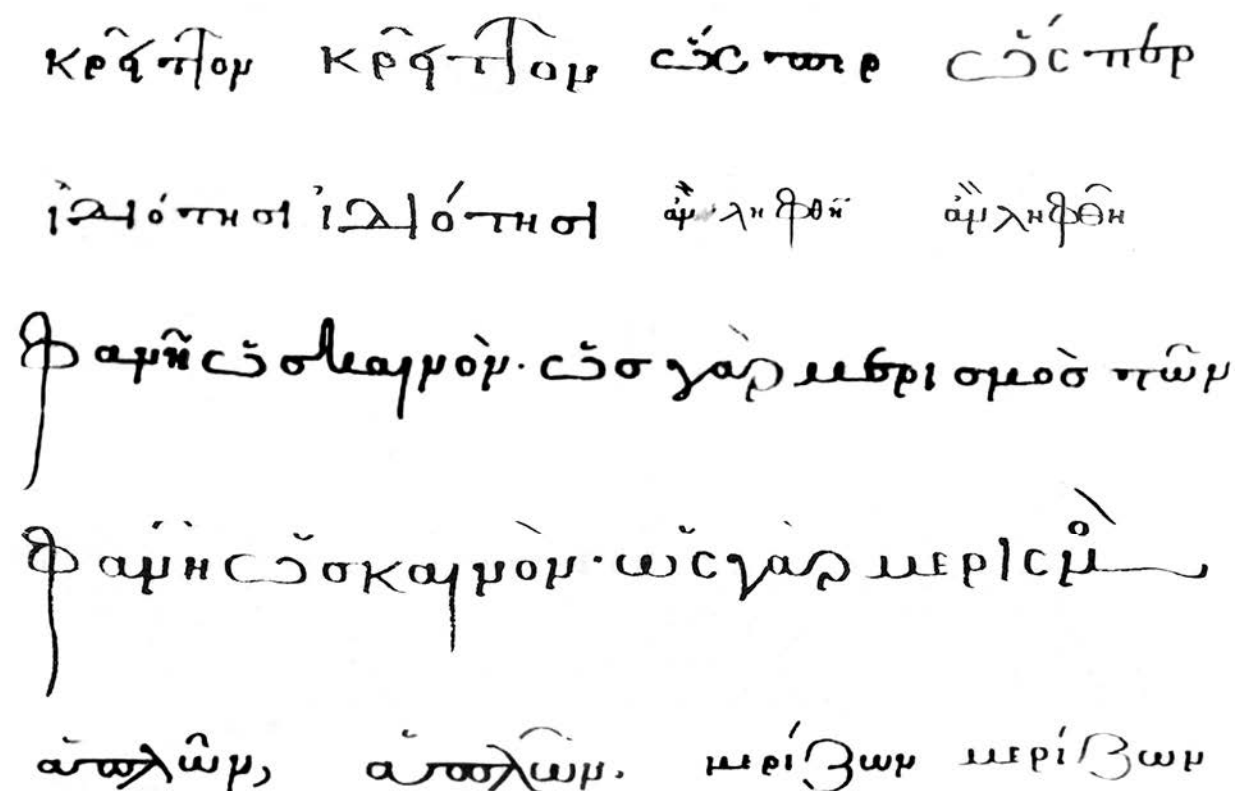 κρεῖττον κρεῖττον ὥσπερ ὥσπερ
ἰδιότησι ἰδιότησι ἂν ληφθῆ ἂν ληφθῆ
φανῆ ὡς καινὸν· ὡς γὰρ μερισμὸσ τῶν
φανῆ ὡς καινὸν· ὡς γὰρ μερισμὸ
ἁπλῶν, ἁπλῶν. μερίζων μερίζων